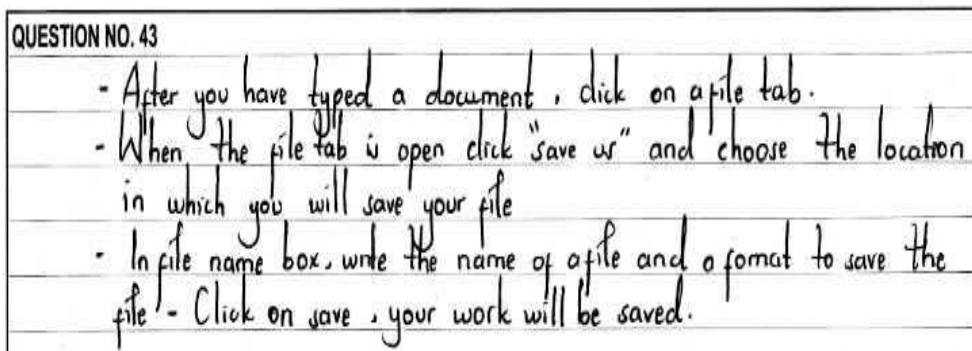 QUESTION NO. 43
- After you have typed a document, click on a file tab.
- When the file tab is open click "save us" and choose the location
in which you will save your file
- In file name box, write the name of a file and a fomat to save the
file - Click on save, your work will be saved.